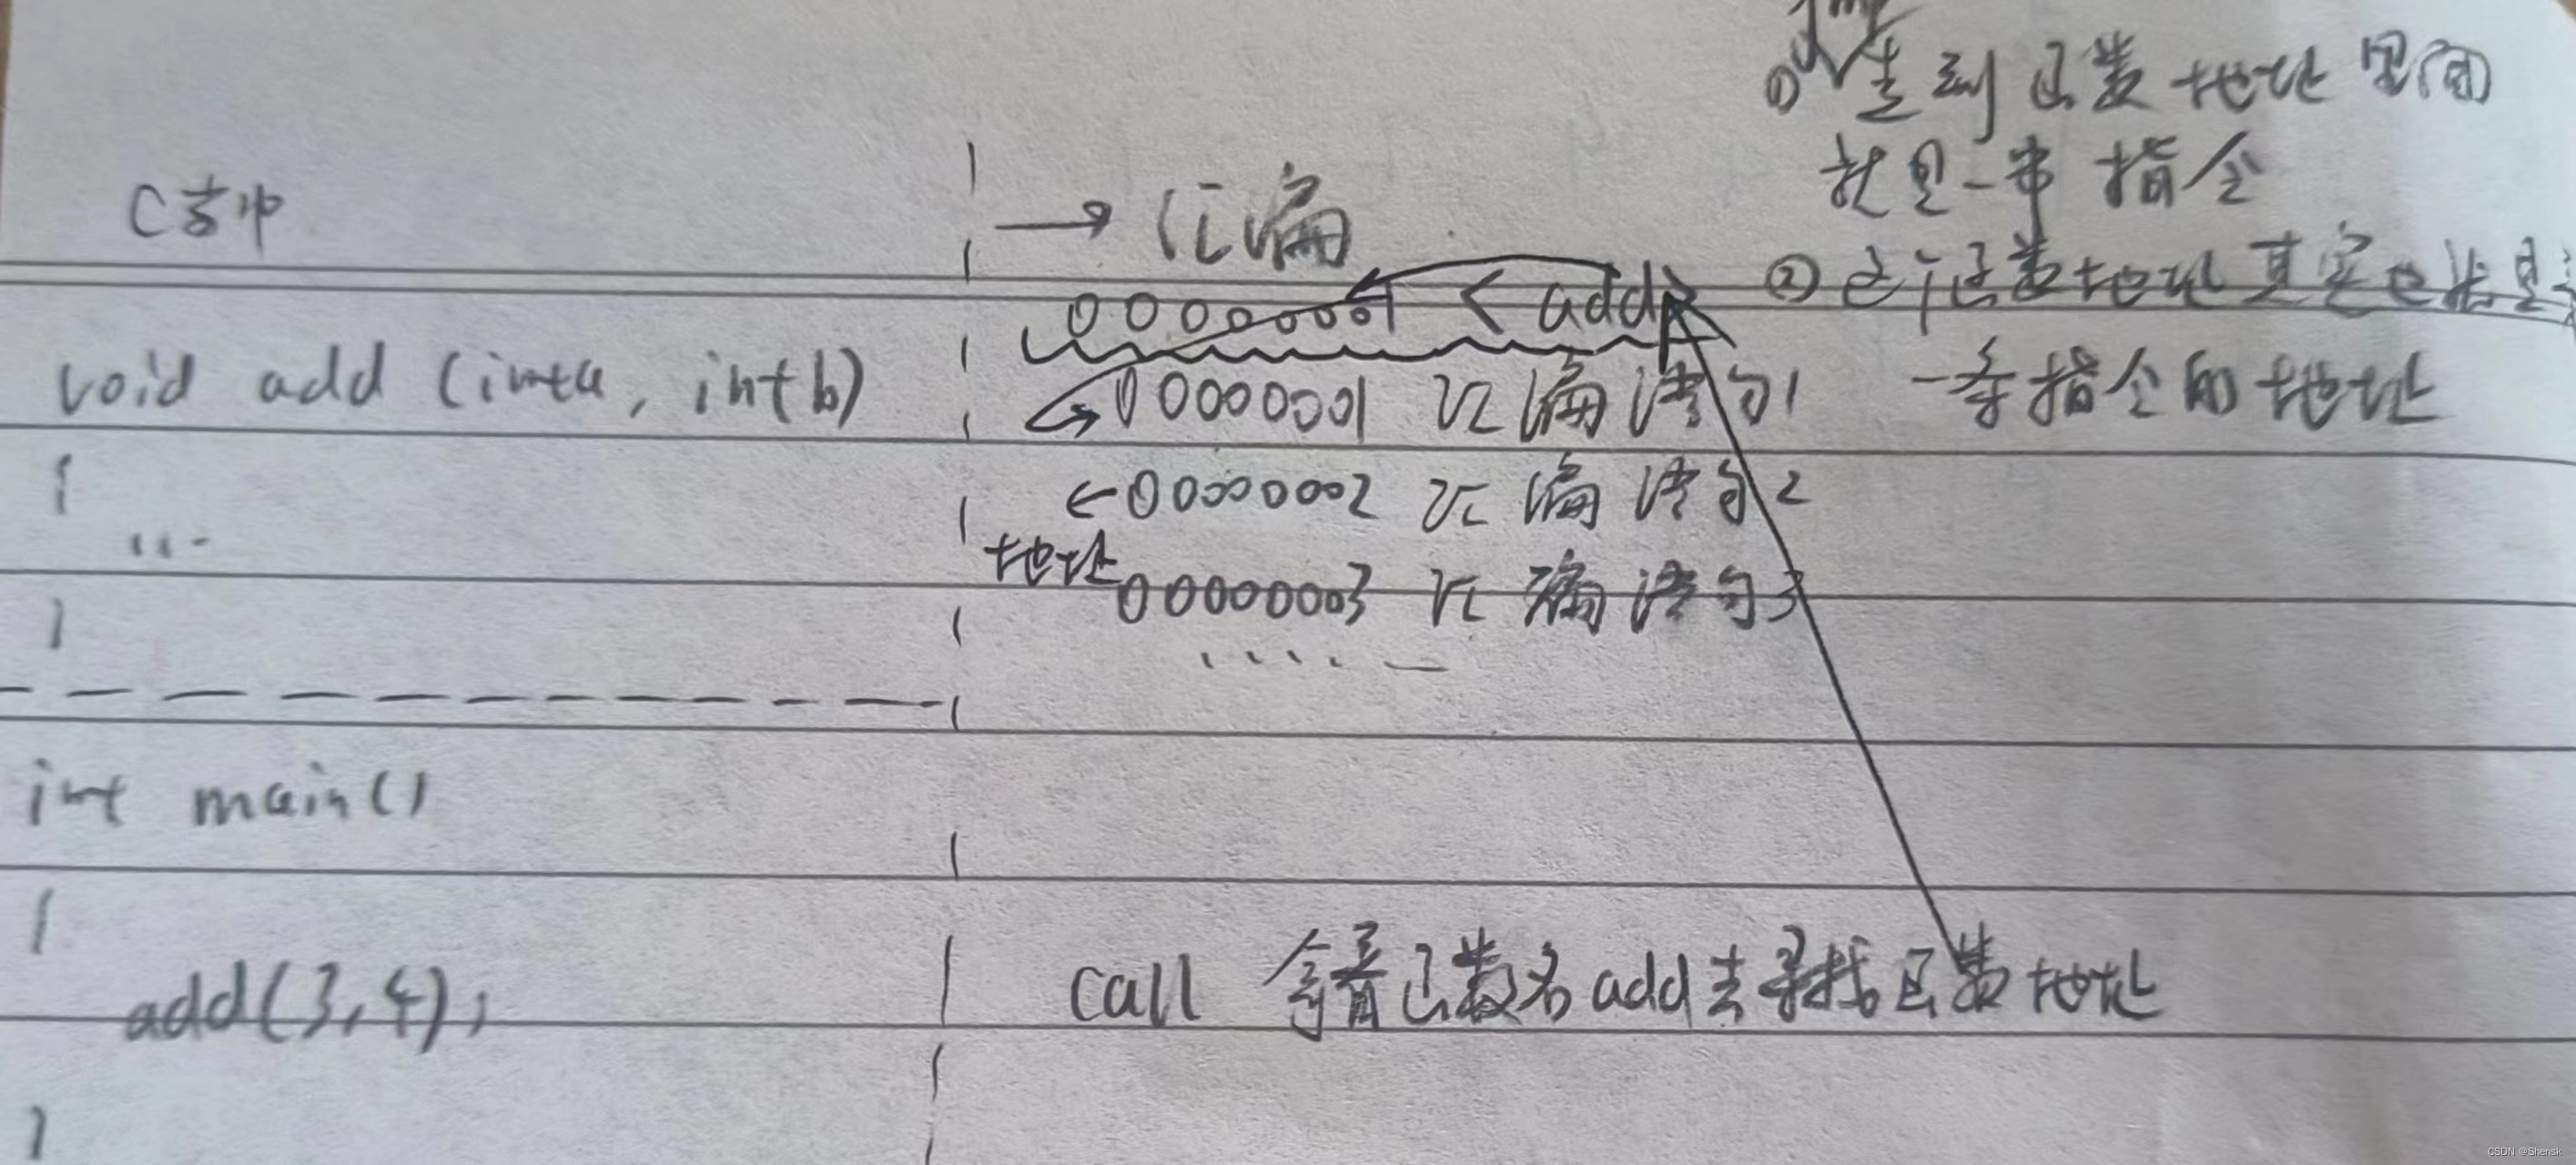 ① 走到函数地址里面
就是一串指令
C言中
→ 汇编
00000001 <add>
② 这行函数地址其实也就是
void add (int a, int b)
00000001 汇编语句1
一条指令的地址
{
00000002 汇编语句2
...
地址
00000003 汇编语句3
}
......
int main()
{
add(3,4);
call 拿着函数名add去寻找函数地址
}
CSDN @Shensk